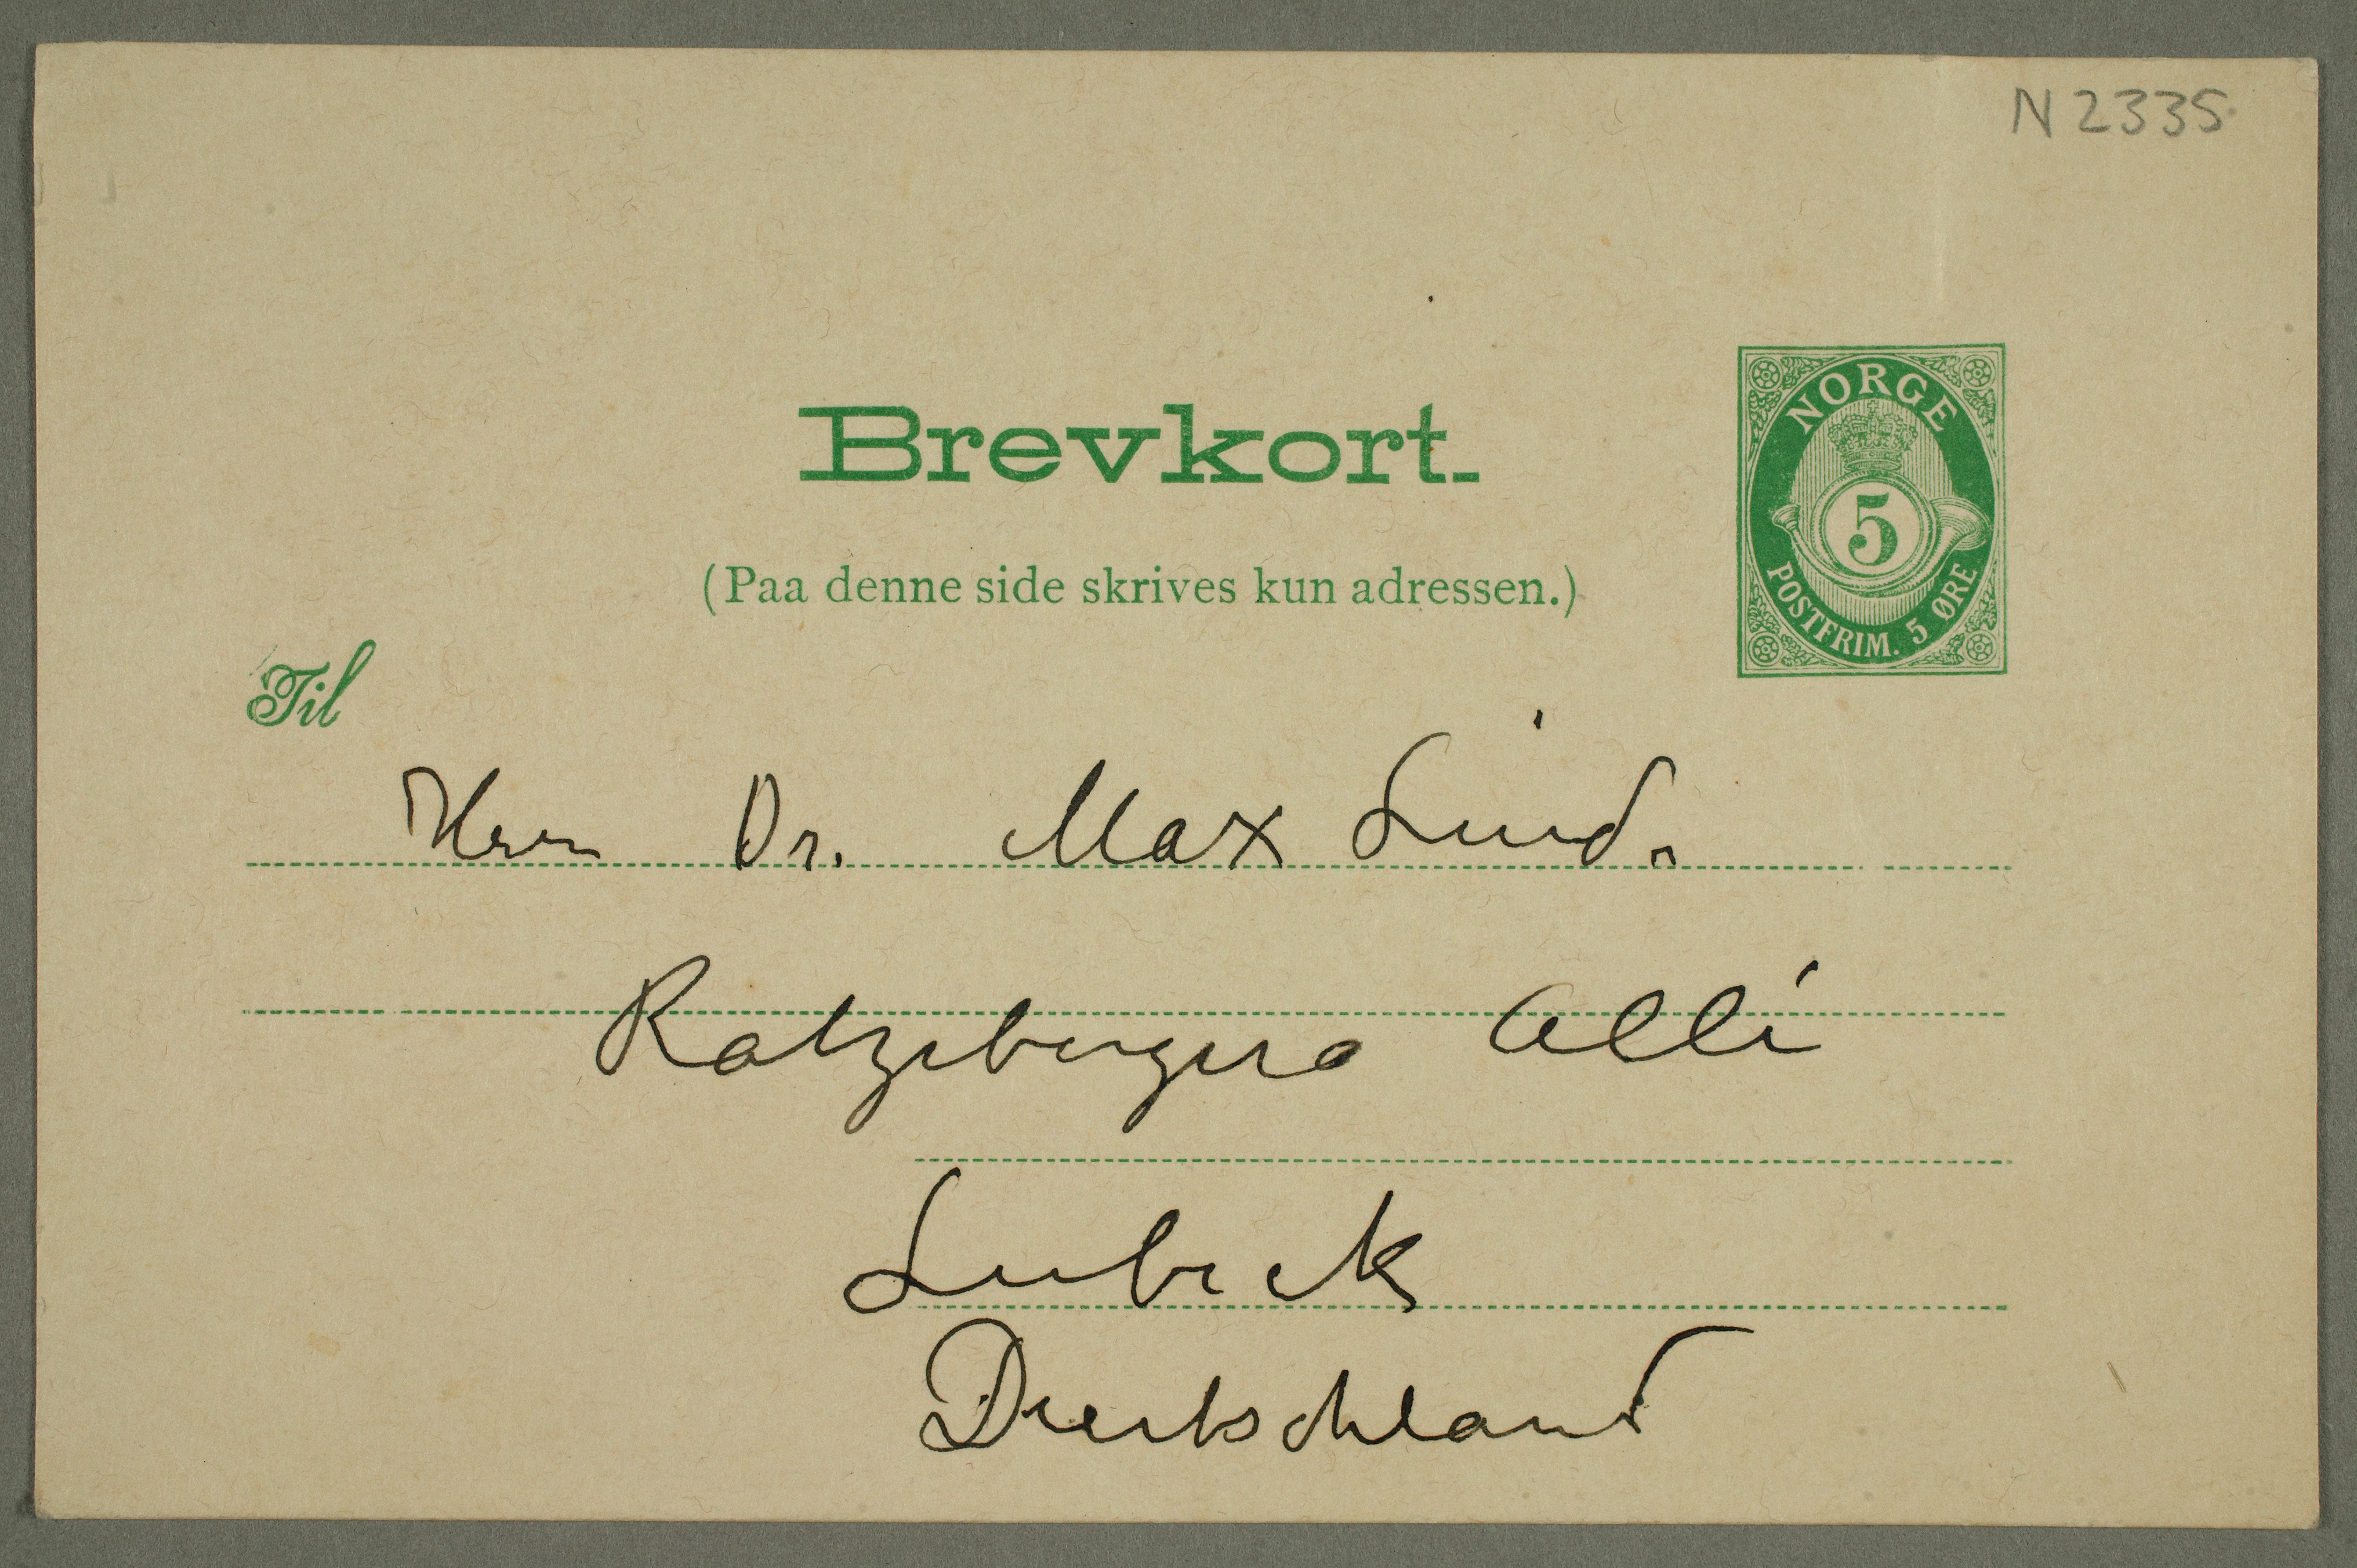 N 2335
Brevkort.
(Paa denne side skrives kun adressen.)
NORGE
5
POSTFRIM. 5 ØRE
Til
Herrn Dr. Max Linde
Ratzeburger Allé
Lubeck
Deutschland